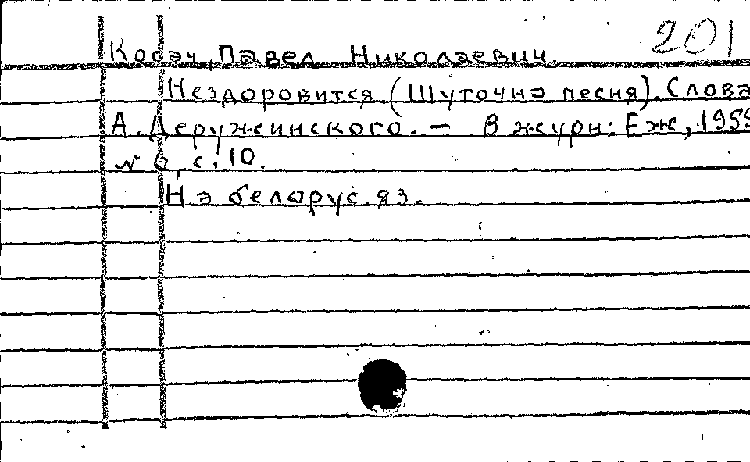 201
Косач, Павел Николаевич
Нездоровится. (Шуточна песня). Слова
А. Деружинского. — В журн: Еж, 1959
№ 6, с. 10.
На белорус. яз.